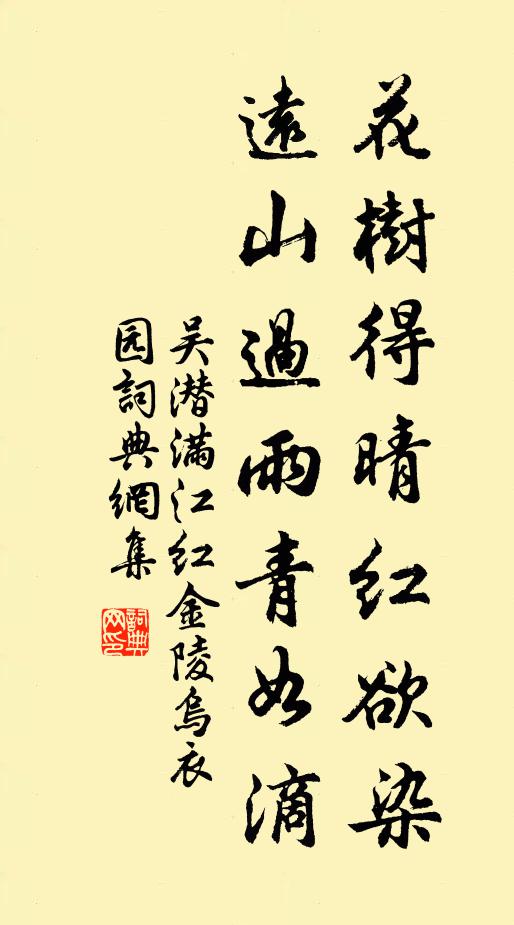 花樹得晴红欲染
遠山過雨青如滴
吴潜满江红金陵烏衣
园詞典網集
詞典网印